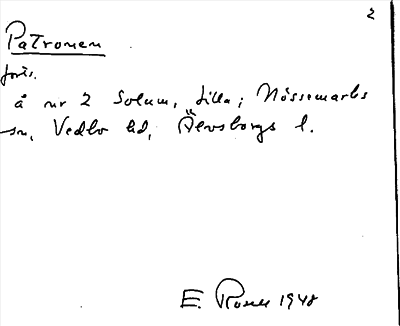 2
Patronen
forts.
å nr 2 Solum, Lilla; Nössemarks
sn, Vedbo hd, Älvsborgs l.
E. Rosell 1948